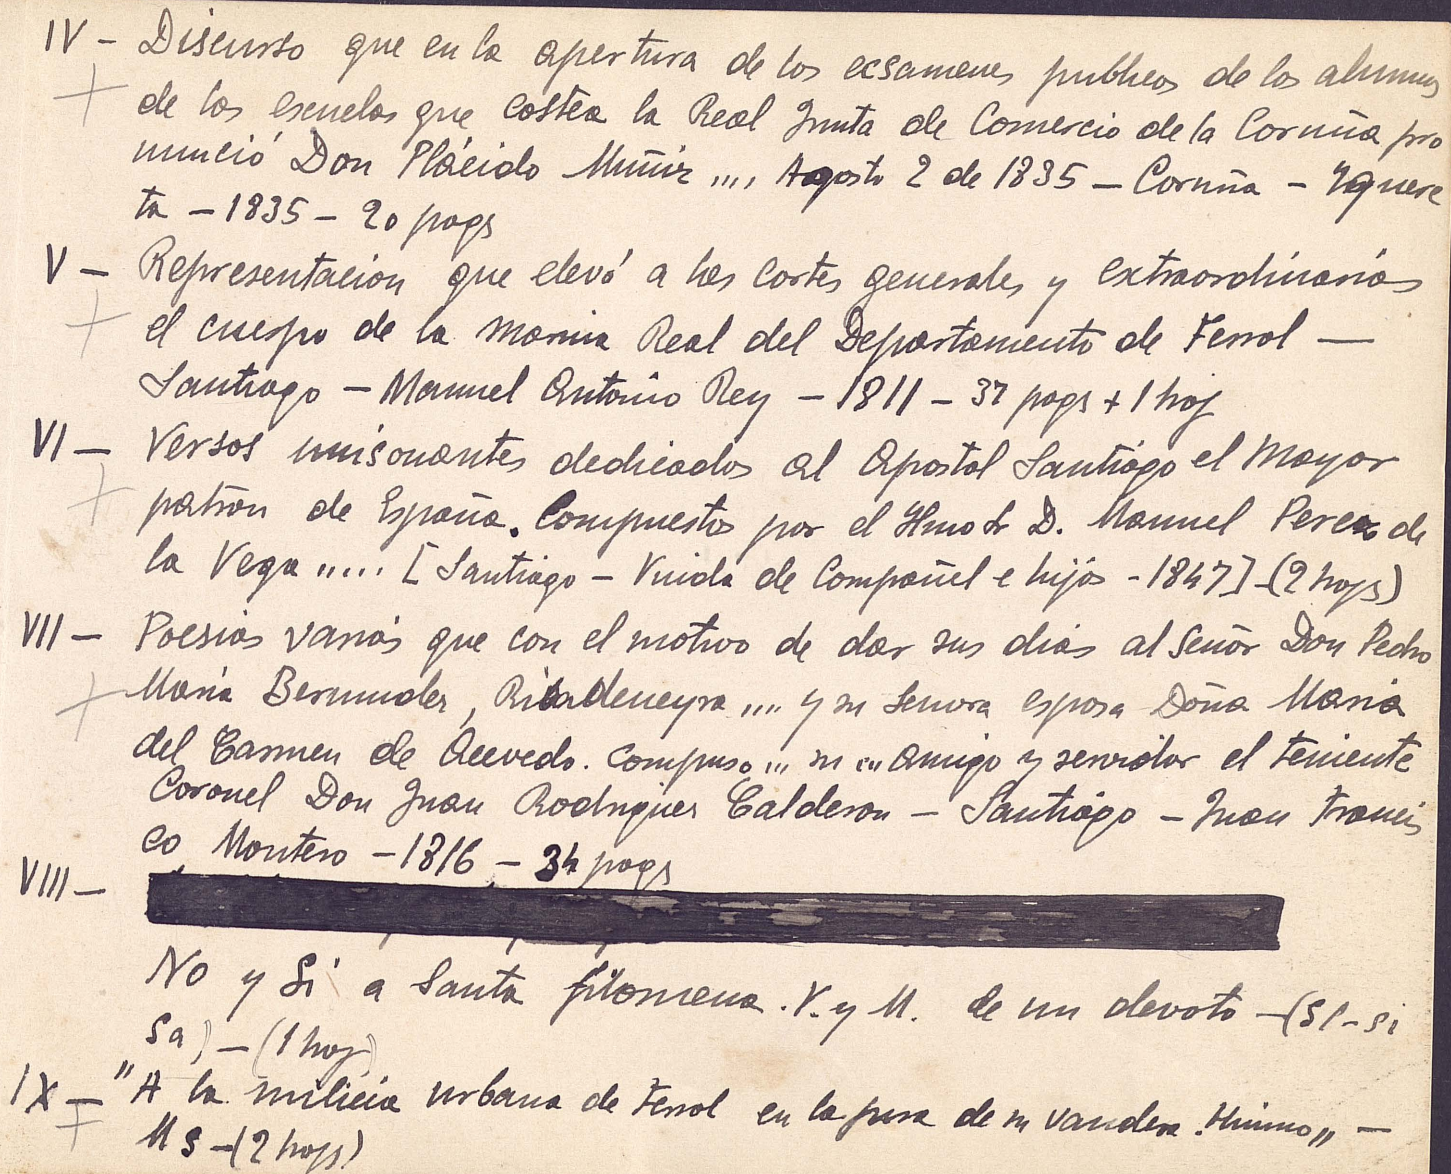 IV - Discurso que en la apertura de los ecsamenes publicos de los alumnos
de las escuelas que costea la Real Junta de Comercio de la Coruña pro
nunció Don Plácido Muñiz ,,,, Agosto 2 de 1835 - Coruña - Yguere
ta - 1835 - 20 pags
V - Representacion que elevó a las Cortes generales y extraordinarias
el cuerpo de la Marina Real del Departamento de Ferrol -
Santiago - Manuel Antonio Rey - 1811 - 37 pags + 1 hoj
VI - Versos unisonantes dedicados al Apostol Santiago el Mayor
patron de España. Compuestos por el Hmo Sr D. Manuel Perez de
la Vega ,,... [Santiago - Viuda de Compañel e hijos - 1847] - (2 hojs)
VII - Poesias varias que con el motivo de dar sus dias al Señor Don Pedro
Maria Bermudez, Ribadeneyra ,,,, y su Senora esposa Doña Maria
del Carmen de Acevedo. Compuso ,,, su ,,, amigo y servidor el Teniente
Coronel Don Juan Rodriguez Calderon - Santiago - Juan Francis
co Montero - 1816 - 34 pags
VIII -
No y Si a Santa filomena. V. y M. de un devoto - (Sl - Si
Sa) - (1 hoj)
IX - "A la milicia urbana de Ferrol en la jura de su vandera. Himno" -
MS - (2 hojs)